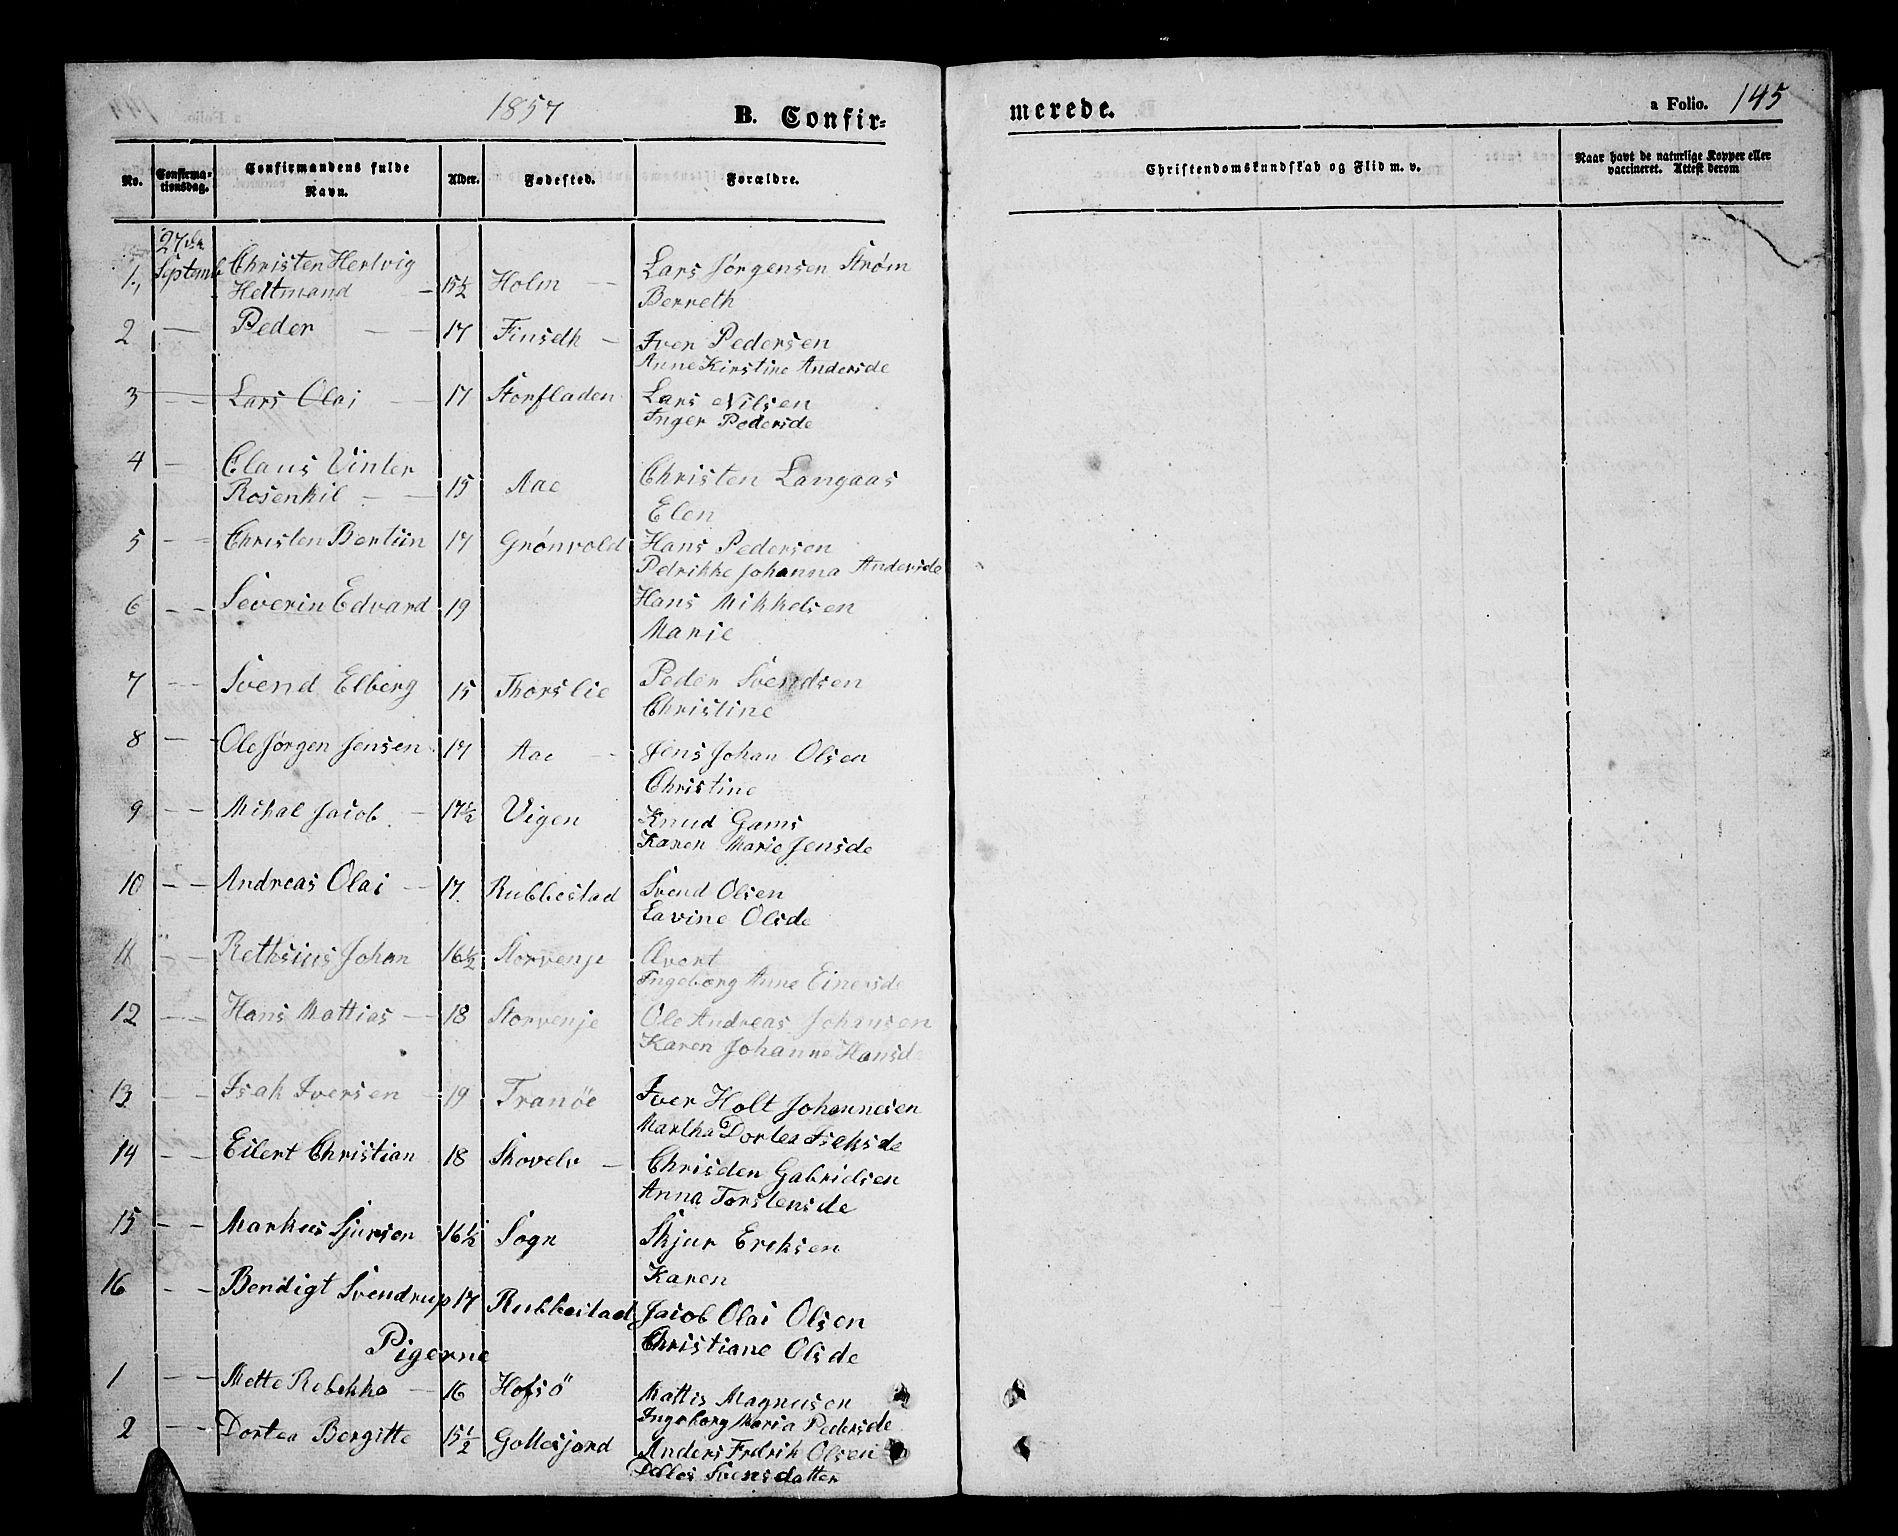 1857 B. Confir=
merede. a Folio. 145
No. Confirma-tionsdag. Confirmandens fulde Navn. Alder. Fødested. Forældre.
Christendomskundskab og Flid m. v. Naar havt de naturlige Kopper eller vaccineret. Attest derom
27de
1., Septemb Christen Hertvig
Heltmand — 15½ Holm — Lars Jørgensen Strøm
Berreth
2 — Peder — — 17 Finseth — Iver Pedersen
Anne Kirstine Andersde
3 — — Lars Olai — 17 Storfladen Lars Nilsen
Inger Pedersde
4 — Claus Vinter
Rosenkil — — 15 Aae Christen Langaas
Elen
5 — — Christen Bertiin 17 Grønvold Hans Pedersen
Pedrikke Johanna Andersde
6 — — Severin Edvard 19 Hans Mikkelsen
Marie
7 — — Svend Elberg 15 Thorslie Peder Svendsen
Christine
8 — — Ole Jørgen Jensen 17 Aae — Jens Johan Olsen
Christine
9 — — Mikal Jacob — 17½ Vigen Knud Gams
Karen Marie Jensde
10 — — Andreas Olai — 17. Rubbestad Svend Olsen
Lavine Olsde
11 — — Rethsius Johan 16½ Storvenje Evort
Ingeborg Anne Einersde
12 — — Hans Mattias — 18 Storvenje Ole Andreas Johansen
Karen Johanne Hansd
13 — — Isak Iversen — 19 Tranöe Iver Holt Johannesen
Martha Dortea Isaksde
14 — — Eilert Christian 18 Skovelv — Chrisden Gabrielsen
Anna Torstensde
15 — — Markus Sjursen 16½ Sogn Skjur Ereksen
Karen
16 — — Bendigt Svendrup 17 Rubbestad Jacob Olai Olsen
Christiane Olsde
Pigerne
1 — — Mette Rebekka — 16 Hofsö Mattis Magnusen
Ingeborg Maria Pedersde
2 — — Dortea Bergitte 15½ Gottesjord Anders Fredrik Olsen
Svensdatter